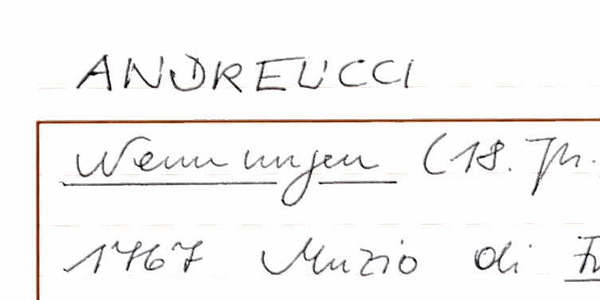 ANDREUCCI
Nennungen (18. Jh.
1767 Muzio di